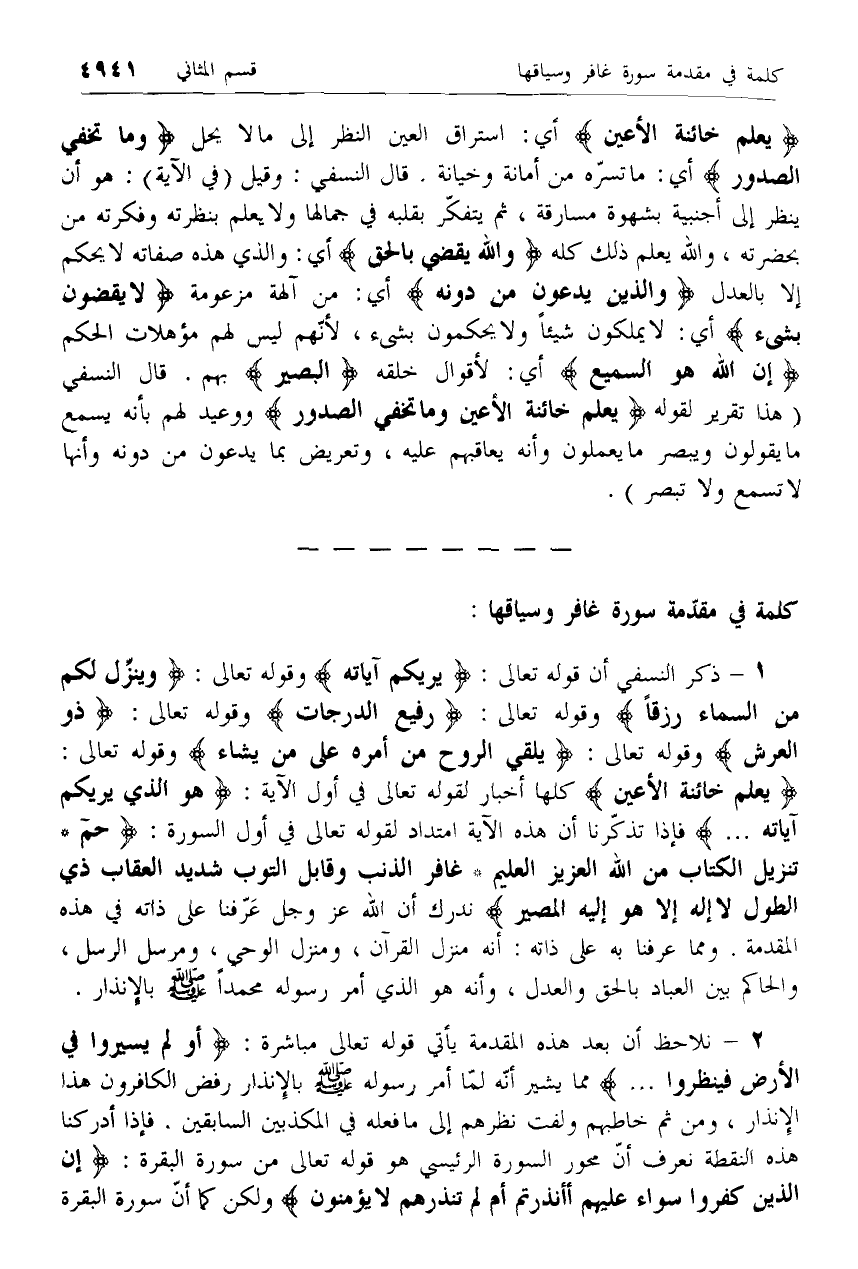 كلمة في مقدمة سورة غافر وسياقها قسم المثاني ٤٩٤١
﴿ يعلم خائنة الأعين ﴾ أي : استراق العين النظر إلى مالا يحل ﴿ وما تخفي
الصدور ﴾ أي : ماتسرّه من أمانة وخيانة . قال النسفي : وقيل (في الآية) : هو أن
ينظر إلى أجنبية بشهوة مسارقة ، ثم يتفكّر بقلبه في جمالها ولايعلم بنظرته وفكرته من
بحضرته ، والله يعلم ذلك كله ﴿ والله يقضي بالحق ﴾ أي : والذي هذه صفاته لايحكم
إلا بالعدل ﴿ والذين يدعون من دونه ﴾ أي : من آلهة مزعومة ﴿ لايقضون
بشيء ﴾ أي : لايملكون شيئاً ولايحكمون بشيء ، لأنّهم ليس لهم مؤهلات الحكم
﴿ إن الله هو السميع ﴾ أي : لأقوال خلقه ﴿ البصير ﴾ بهم . قال النسفي
( هذا تقرير لقوله ﴿ يعلم خائنة الأعين وماتخفي الصدور ﴾ ووعيد لهم بأنه يسمع
مايقولون ويبصر مايعملون وأنه يعاقبهم عليه ، وتعريض بما يدعون من دونه وأنها
لاتسمع ولا تبصر ) .
– – – – – – – –
كلمة في مقدّمة سورة غافر وسياقها :
١ – ذكر النسفي أن قوله تعالى : ﴿ يريكم آياته ﴾ وقوله تعالى : ﴿ وينزّل لكم
من السماء رزقاً ﴾ وقوله تعالى : ﴿ رفيع الدرجات ﴾ وقوله تعالى : ﴿ ذو
العرش ﴾ وقوله تعالى : ﴿ يلقي الروح من أمره على من يشاء ﴾ وقوله تعالى :
﴿ يعلم خائنة الأعين ﴾ كلها أخبار لقوله تعالى في أول الآية : ﴿ هو الذي يريكم
آياته ... ﴾ فإذا تذكّرنا أن هذه الآية امتداد لقوله تعالى في أول السورة : ﴿ حمٓ *
تنزيل الكتاب من الله العزيز العليم * غافر الذنب وقابل التوب شديد العقاب ذي
الطول لاإله إلا هو إليه المصير ﴾ ندرك أن الله عز وجل عَرّفنا على ذاته في هذه
المقدمة . ومما عرفنا به على ذاته : أنه منزل القرآن ، ومنزل الوحي ، ومرسل الرسل ،
والحاكم بين العباد بالحق والعدل ، وأنه هو الذي أمر رسوله محمداً ﷺ بالإنذار .
٢ – نلاحظ أن بعد هذه المقدمة يأتي قوله تعالى مباشرة : ﴿ أو لم يسيروا في
الأرض فينظروا ... ﴾ مما يشير أنّه لمّا أمر رسوله ﷺ بالإنذار رفض الكافرون هذا
الإنذار ، ومن ثم خاطبهم ولفت نظرهم إلى مافعله في المكذبين السابقين . فإذا أدركنا
هذه النقطة نعرف أنّ محور السورة الرئيسي هو قوله تعالى من سورة البقرة : ﴿ إن
الذين كفروا سواء عليهم أأنذرتم أم لم تنذرهم لايؤمنون ﴾ ولكن كما أنّ سورة البقرة